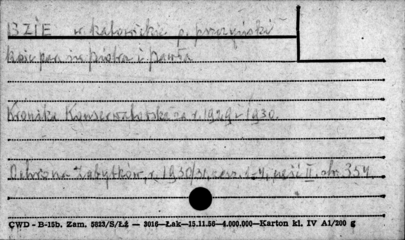 BZIE w katowickie p. pszczyński
kośc. par. św. Piotra i Pawła
Kronika Konserwatorska za r. 1929 i 1930.
Ochrona Zabytków, r. 1930/31, część II, str. 354
CWD - B-15b. Zam. 5823/S/ŁŻ — 3016—Łak—15.11.56—4.000.000—Karton kl. IV A1/200 g